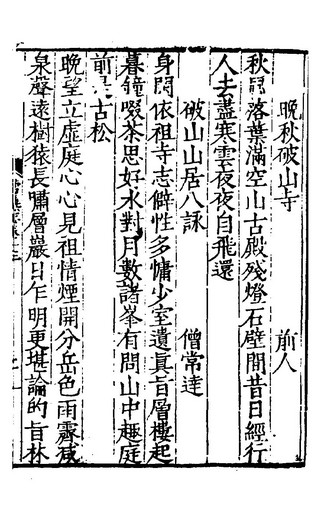 晚秋破山寺 前人
秋風落葉滿空山古殿殘燈石壁間昔日經行
人去盡寒雲夜夜自飛還
破山山居八詠 僧常逹
身閒依祖寺志僻性多慵少室遺眞旨層樓起
暮鐘啜茶思好水對月數諸峯有問山中趣庭
前是古松
晚望立虛庭心心見祖情煙開分岳色雨霽減
泉聲遠樹猿長嘯層巖日乍明更堪論的旨林